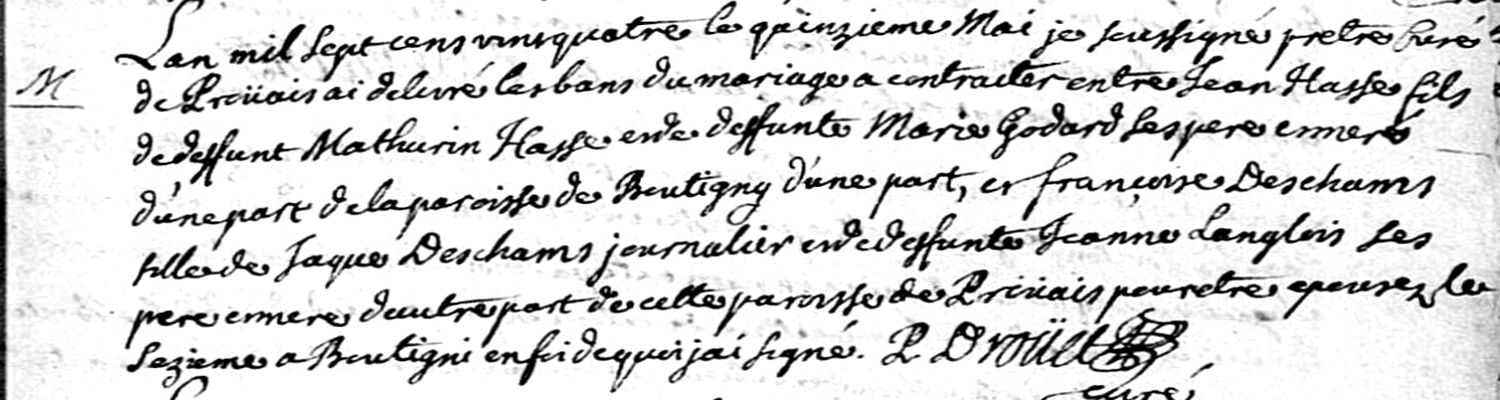 Lan mil sept cens vint quatre le quinzieme Mai je soussigné pretre Curé
M
de Proüais ai delivré les bans du mariage a contracter entre Jean Hasse fils
de deffunt Mathurin Hasse et de deffunte Marie Godard ses pere et mere
d'une part de la paroisse de Boutigny d'une part, et françoise Deschams
fille de Jaque Deschams journalier et de deffunte Jeanne Langlois ses
pere et mere d'autre part de cette paroisse de Proüais pour etre epousez le
sezieme a Boutigni en foi de quoi j'ai signé. P Droüet
curé